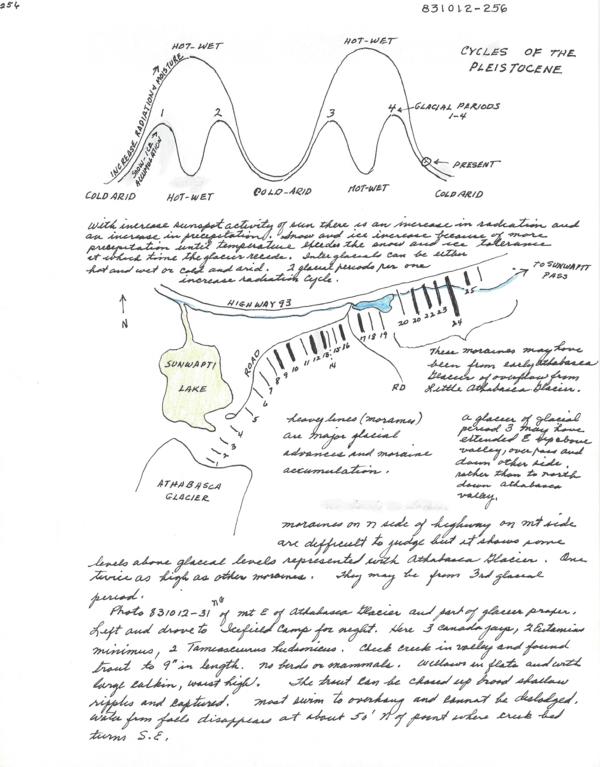 256
831012-256
CYCLES OF THE
PLEISTOCENE
HOT-WET
HOT-WET
INCREASE RADIATION & MOISTURE
SNOW-ICE
ACCUMULATION
1
2
3
4
GLACIAL PERIODS
1-4
PRESENT
COLD ARID
HOT-WET
COLD-ARID
HOT-WET
COLD ARID
With increase sunspot activity of sun there is an increase in radiation and
an increase in precipitation. Snow and ice increase because of more
precipitation until temperature exceeds the snow and ice tolerance
at which time the glacier recede. Interglacials can be either
hot and wet or cold and arid. 2 glacial periods per one
increase radiation cycle.
TO SUNWAPTI
PASS
N
HIGHWAY 93
SUNWAPTI
LAKE
ROAD
RD
1 2 3 4 5 6 7 8 9 10 11 12 13 14 15 16 17 18 19 20 20 22 23 24 25
ATHABASCA
GLACIER
These moraines may have
been from early Athabasca
Glacier or overflow from
Little Athabasca Glacier.
heavy lines (moraines)
are major glacial
advances and moraine
accumulation.
a glacier of glacial
period 3 may have
extended E up above
valley, over pass and
down other side.
rather than to north
down Athabasca
valley.
moraines on n side of highway on mt side
are difficult to judge but it shows some
levels above glacial levels represented with Athabasca Glacier. One
twice as high as other moraines. They may be from 3rd glacial
period.
Photo 831012-31 of mt E of Athabasca Glacier and part of glacier proper.
Left and drove to Icefield Camp for night. Here 3 canada jays, 2 Eutamias
minimus, 2 Tamiasciurus hudsonicus. Check creek in valley and found
trout to 9" in length. no birds or mammals. Willows in flats and with
large catkin, waist high. The trout can be chased up broad shallow
ripples and captured. most swim to overhang and cannot be dislodged.
Water from falls disappears at about 50' N of point where creek bed
turns S.E.